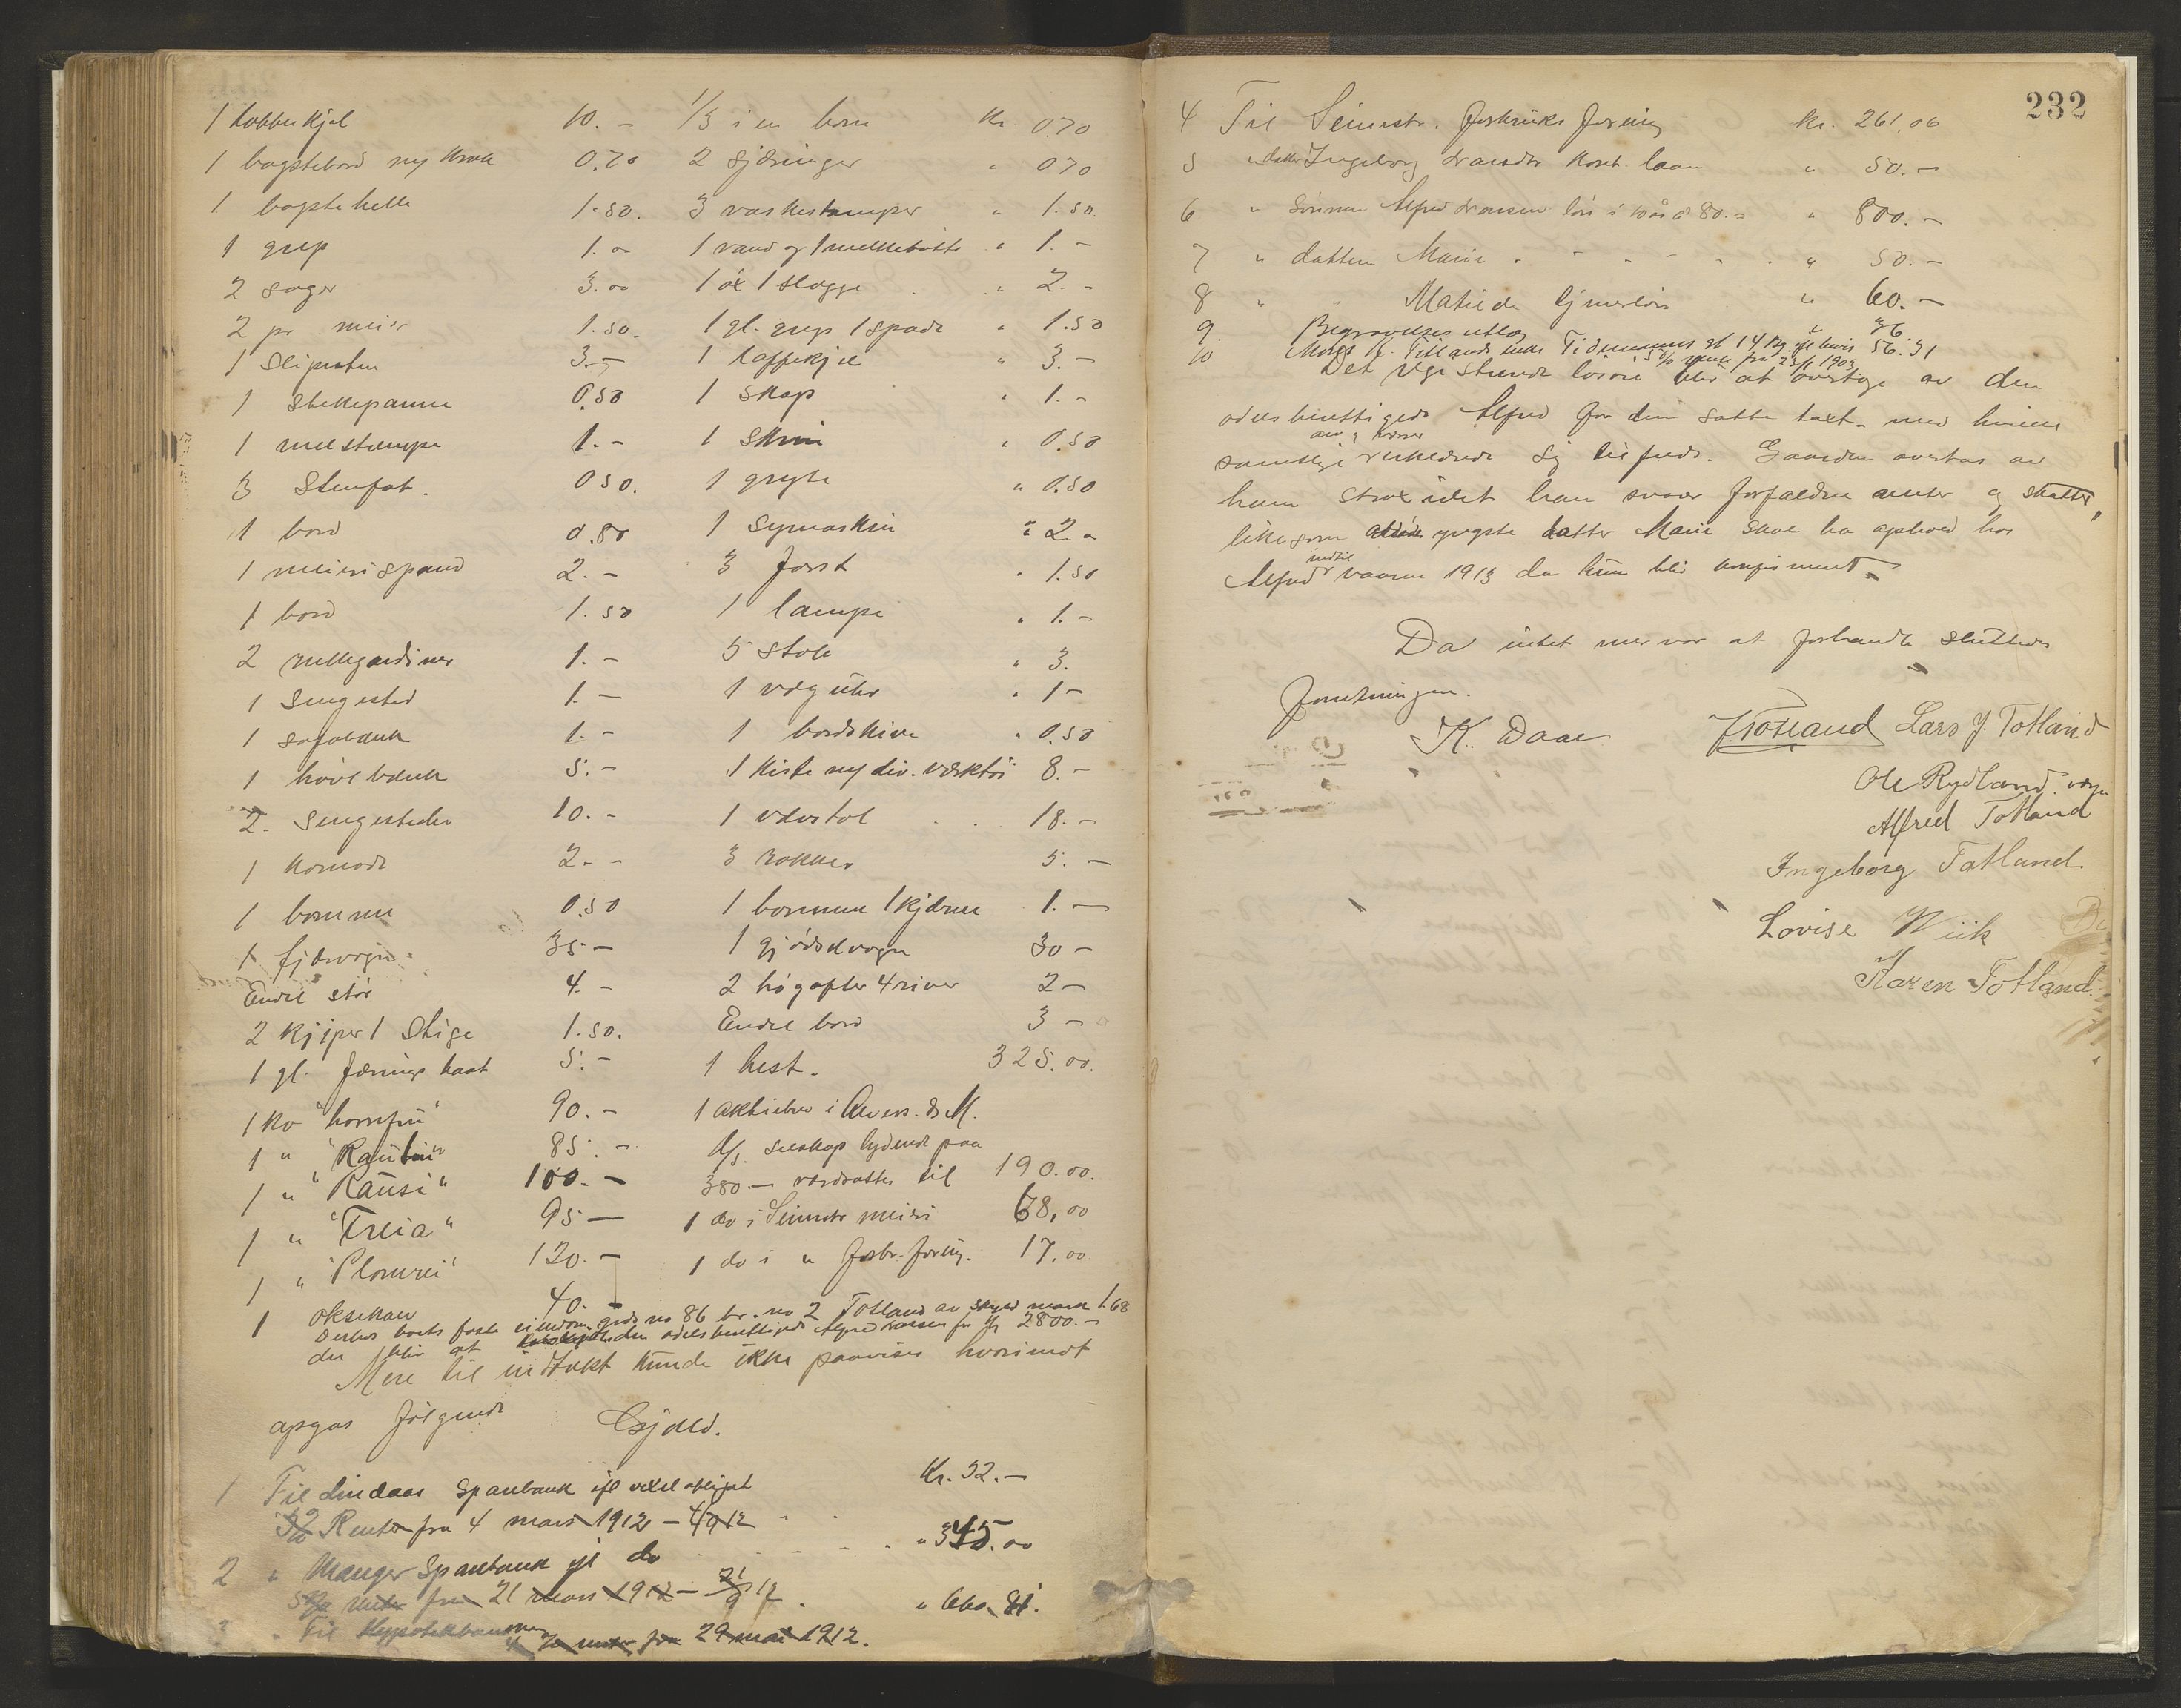 1 kobberkjel 10.- 1/3 i en horn Kr. 0.70
1 bagstebord m/ krak 0.70 2 Sjæringer " 0 70
1 bagstehelle 1.50. 3 vaskestamper " 1.50.
1 grep 1.00 1 vand og 1 melkebøtte " 1.-
2 sager 3.00 1 øx 1 slægge " 2.-
2 pr meier 1.50. 1 gl. grep 1 spade " 1.50
1 Slipesten 3.- 1 kaffekjel " 3.-
1 Stekepanne 0.50 1 Skap " 1.-
1 melstampe 1.- 1 Skrin " 0.50
3 Stenfat. 0 50. 1 gryte " 0.50
1 bord 0.80 1 Symaskin " 2.-
1 meierispand 2.- 3 forst " 1.50
1 bord 1.50 1 lampe " 1.-
2 rullegardiner 1.- 5 Stole " 3.
1 Sengested 1.- 1 væguhr " 1-
1 sofabænk 1.- 1 bordskive " 0.50
1 høvelbænk 5.- 1 Kiste m/ div. verktøi 8.-
2. Sengesteder 10.- 1 vævstol 18.-
1 Komode 2.- 3 rokker 5.-
1 bomme 0.50 1 bomme 1 kjærne 1.-
1 fjærvogn 35- 1 gjødselvogn 30-
Endel stør 4.- 2 høgafler 4 river 2-
2 kjiper 1 Stige 1.50. Endel bord 3-
1 gl. færings baat 5.- 1 hest. 325.00.
1 ko "hornfin" 90.- 1 aktiebrev i Alvers. ds M.
1 " "Raulin" 85.- A/s. selskap lydende paa
1 " "Rausi" 100.- 380- værdsattes til 190.00.
1 " "Freia" 95- 1 do i Seimstr meieri 68,00
1 " "Plomrei" 120.- 1 do i " forbr. foreng. 17,00
1 oksekalv 40.-
Derhos boets faste eiendom gards no 86 br. no 2 Totland av skyld mark 1.68
der blir at den odelsberettigede Alfred Larsen for Kr 2800.-
Mere til indtækt kunde ikke paavises hvorimot
opgas følgende Gjæld.
1 Til Lindaas Sparebank ifl vexelobligat Kr. 32.-
Renter fra 4 mars 1912 - 4/9 12
2 " Manger Sparebank ifl do " 345.00
renter fra 21 mars 1912 - 21/9 12
" Til Hypotekbanken " 660.81.
renter fra 29 mai 1912.
232
4 Til Seimstr. forbruks forening Kr. 261,06
5 " datter Ingeborg Larsdtr kont. laan " 50.-
6 " Sønnen Alfred Larsen løn i 10 år à 80.- " 800.-
7 " datteren Marie " 50.-
8 " " Matilde tjenerløn " 60.-
9. Begravelses utlæg " 36.-
10 Mons K. Titlands Tidemanns 14 ifl bevis 56.31
5 % rente fra 23/ 1903
Det registrerede løsøre blir at overtage av den
odelsberettigede Alfred for den satte takt - med hvilket
samtlige arv. værer erklærede sig tilfreds. Gaarden overtas av
ham strax idet han svarer forfaldne renter og skatter,
likesom yngste datter Marie skal ha ophold hos
Alfred indtil vaaren 1913 da hun blir konfirmert.
Da intet mer var at forhandle sluttedes
forretningen.
K. Daae J. Totland Lars J. Totland
Ole Rydland. værge
Alfred Totland
Ingeborg Totland.
Lovise Wiik
Karen Totland.